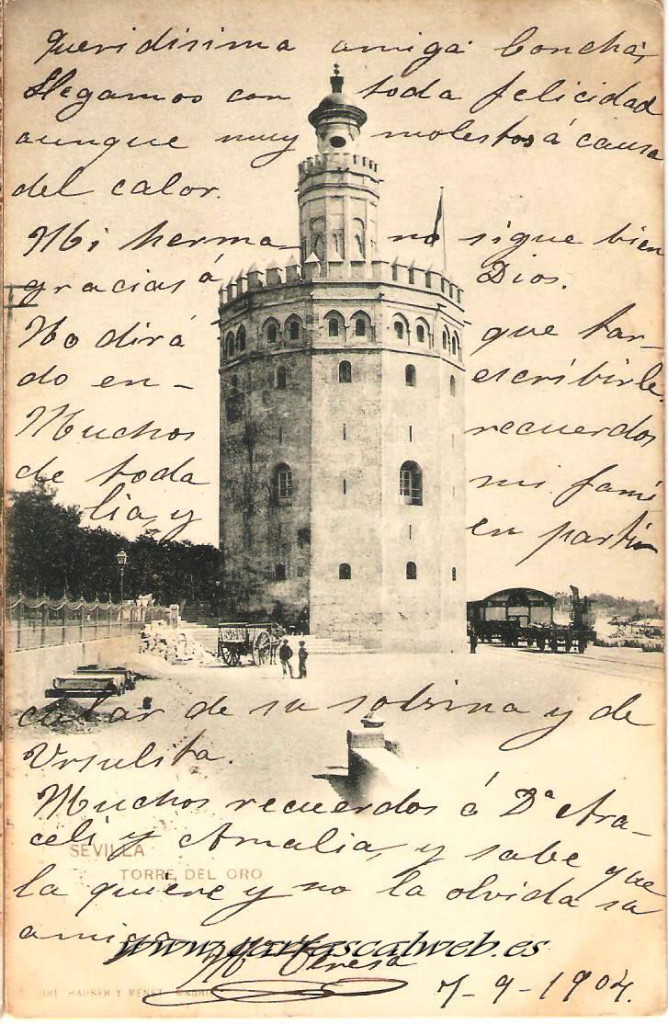 Queridisima amiga Concha,
Llegamos con toda felicidad
aunque muy molestos á causa
del calor.
Mi hermano sigue bien
gracias á Dios.
No dirá que tar-
do en escribirle.
Muchos recuerdos
de toda mi fami
lia, y en parti
cular de su sobrina y de
Ursulita.
Muchos recuerdos á Dª Ara-
celi y Amalia, y sabe que
SEVILLA
TORRE DEL ORO
la quiere y no la olvida su
amiga
www.cartascalweb.es
Mª Teresa
HAUSER Y MENET. MADRID
7-9-1904.